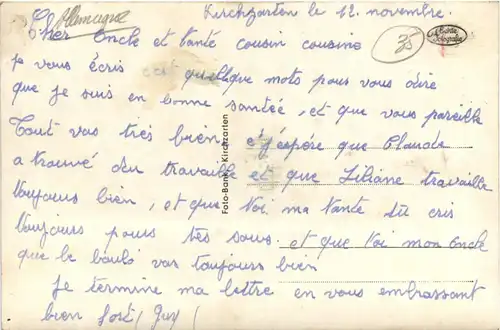 Allemagne
Kirchzarten le 12. novembre.
Cher Oncle et tante cousin cousine
35
je vous écris ces quelque mots pour vous dire
que je suis en bonne santée, et que vous pareille
Tout vas tres bien, et j'éspére que Claude
a trouvé du travaille et que Liliane travaille
toujours bien, et que toi ma tante tu cris
toujours pours tes sous. et que toi mon oncle
que le boulo vas toujours bien
je termine ma lettre en vous embrassant
bien fort, Guy
Foto-Bank - Kirchzarten